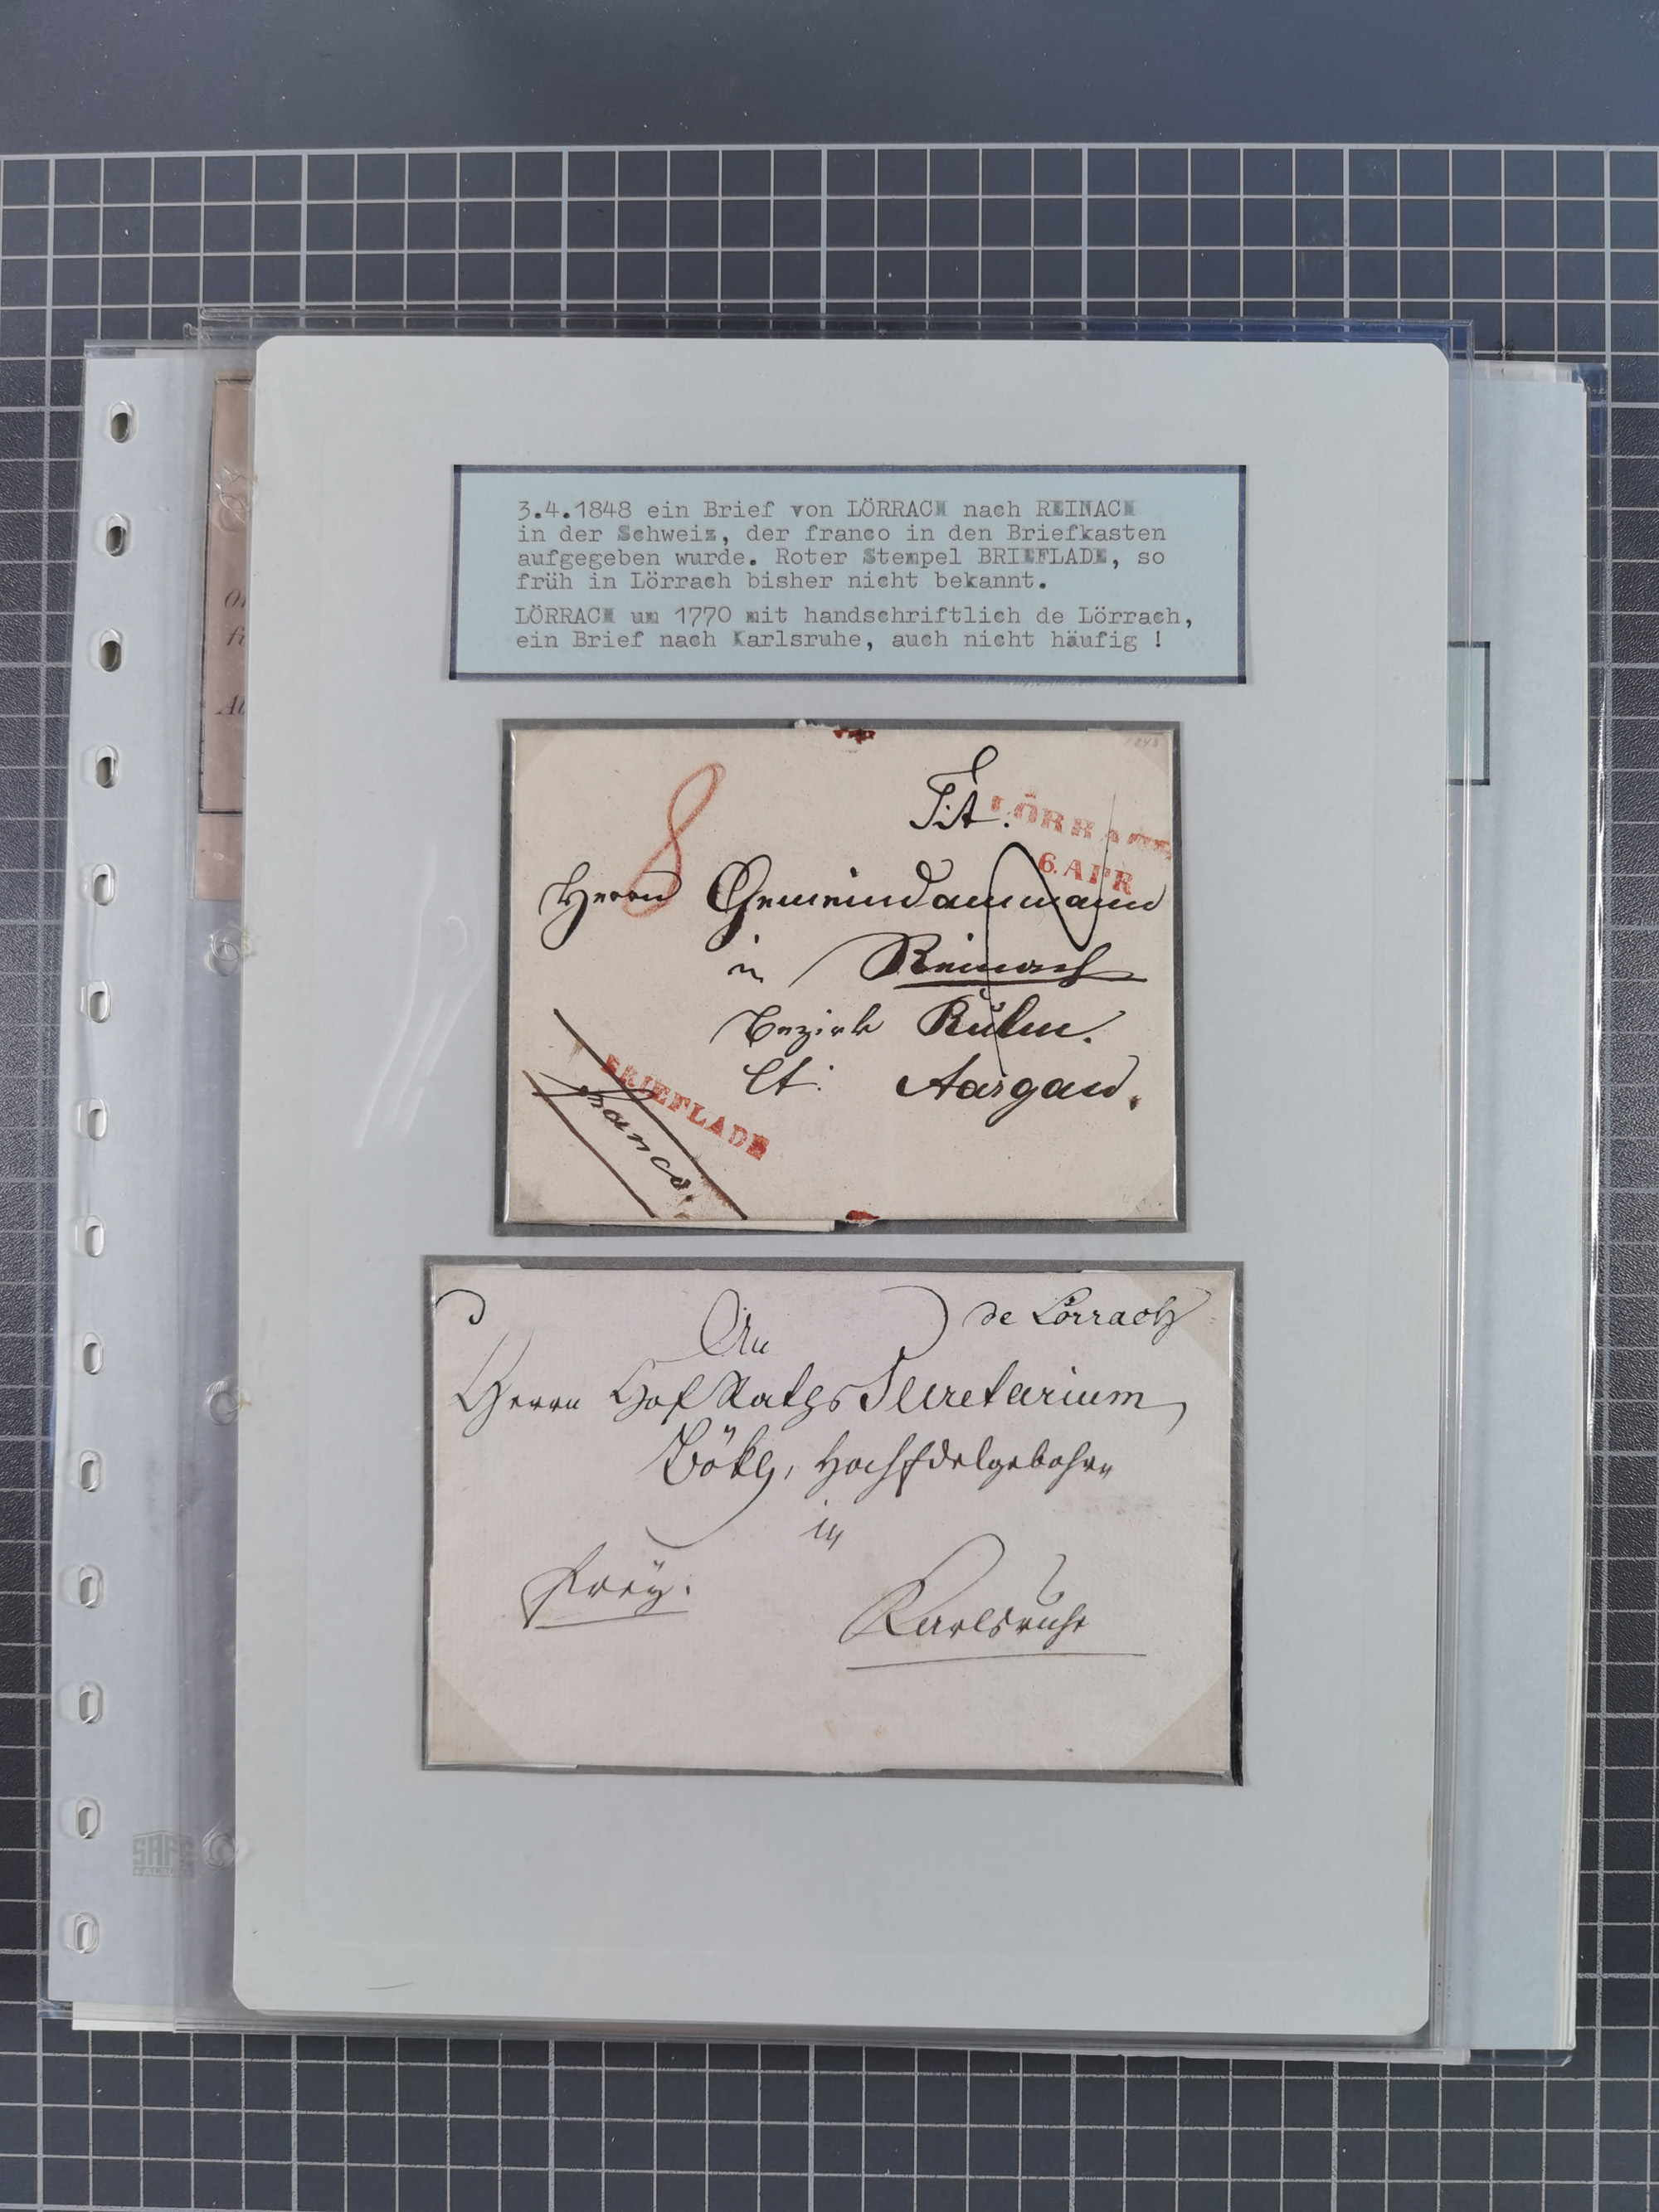 3.4.1848 ein Brief von LÖRRACH nach REINACH
in der Schweiz, der franco in den Briefkasten
aufgegeben wurde. Roter Stempel BRIEFLADE, so
früh in Lörrach bisher nicht bekannt.
LÖRRACH um 1770 mit handschriftlich de Lörrach,
ein Brief nach Karlsruhe, auch nicht häufig !
8
Tit.
LÖRRACH
6.APR
Herrn Gemeindammann
in Reinach
Bezirk Kulm.
Ct: Aargau.
BRIEFLADE
franco.
de Lörrach
An
Herrn Hof Raths Secretarium
in
frey.
Karlsruhe
SAFE